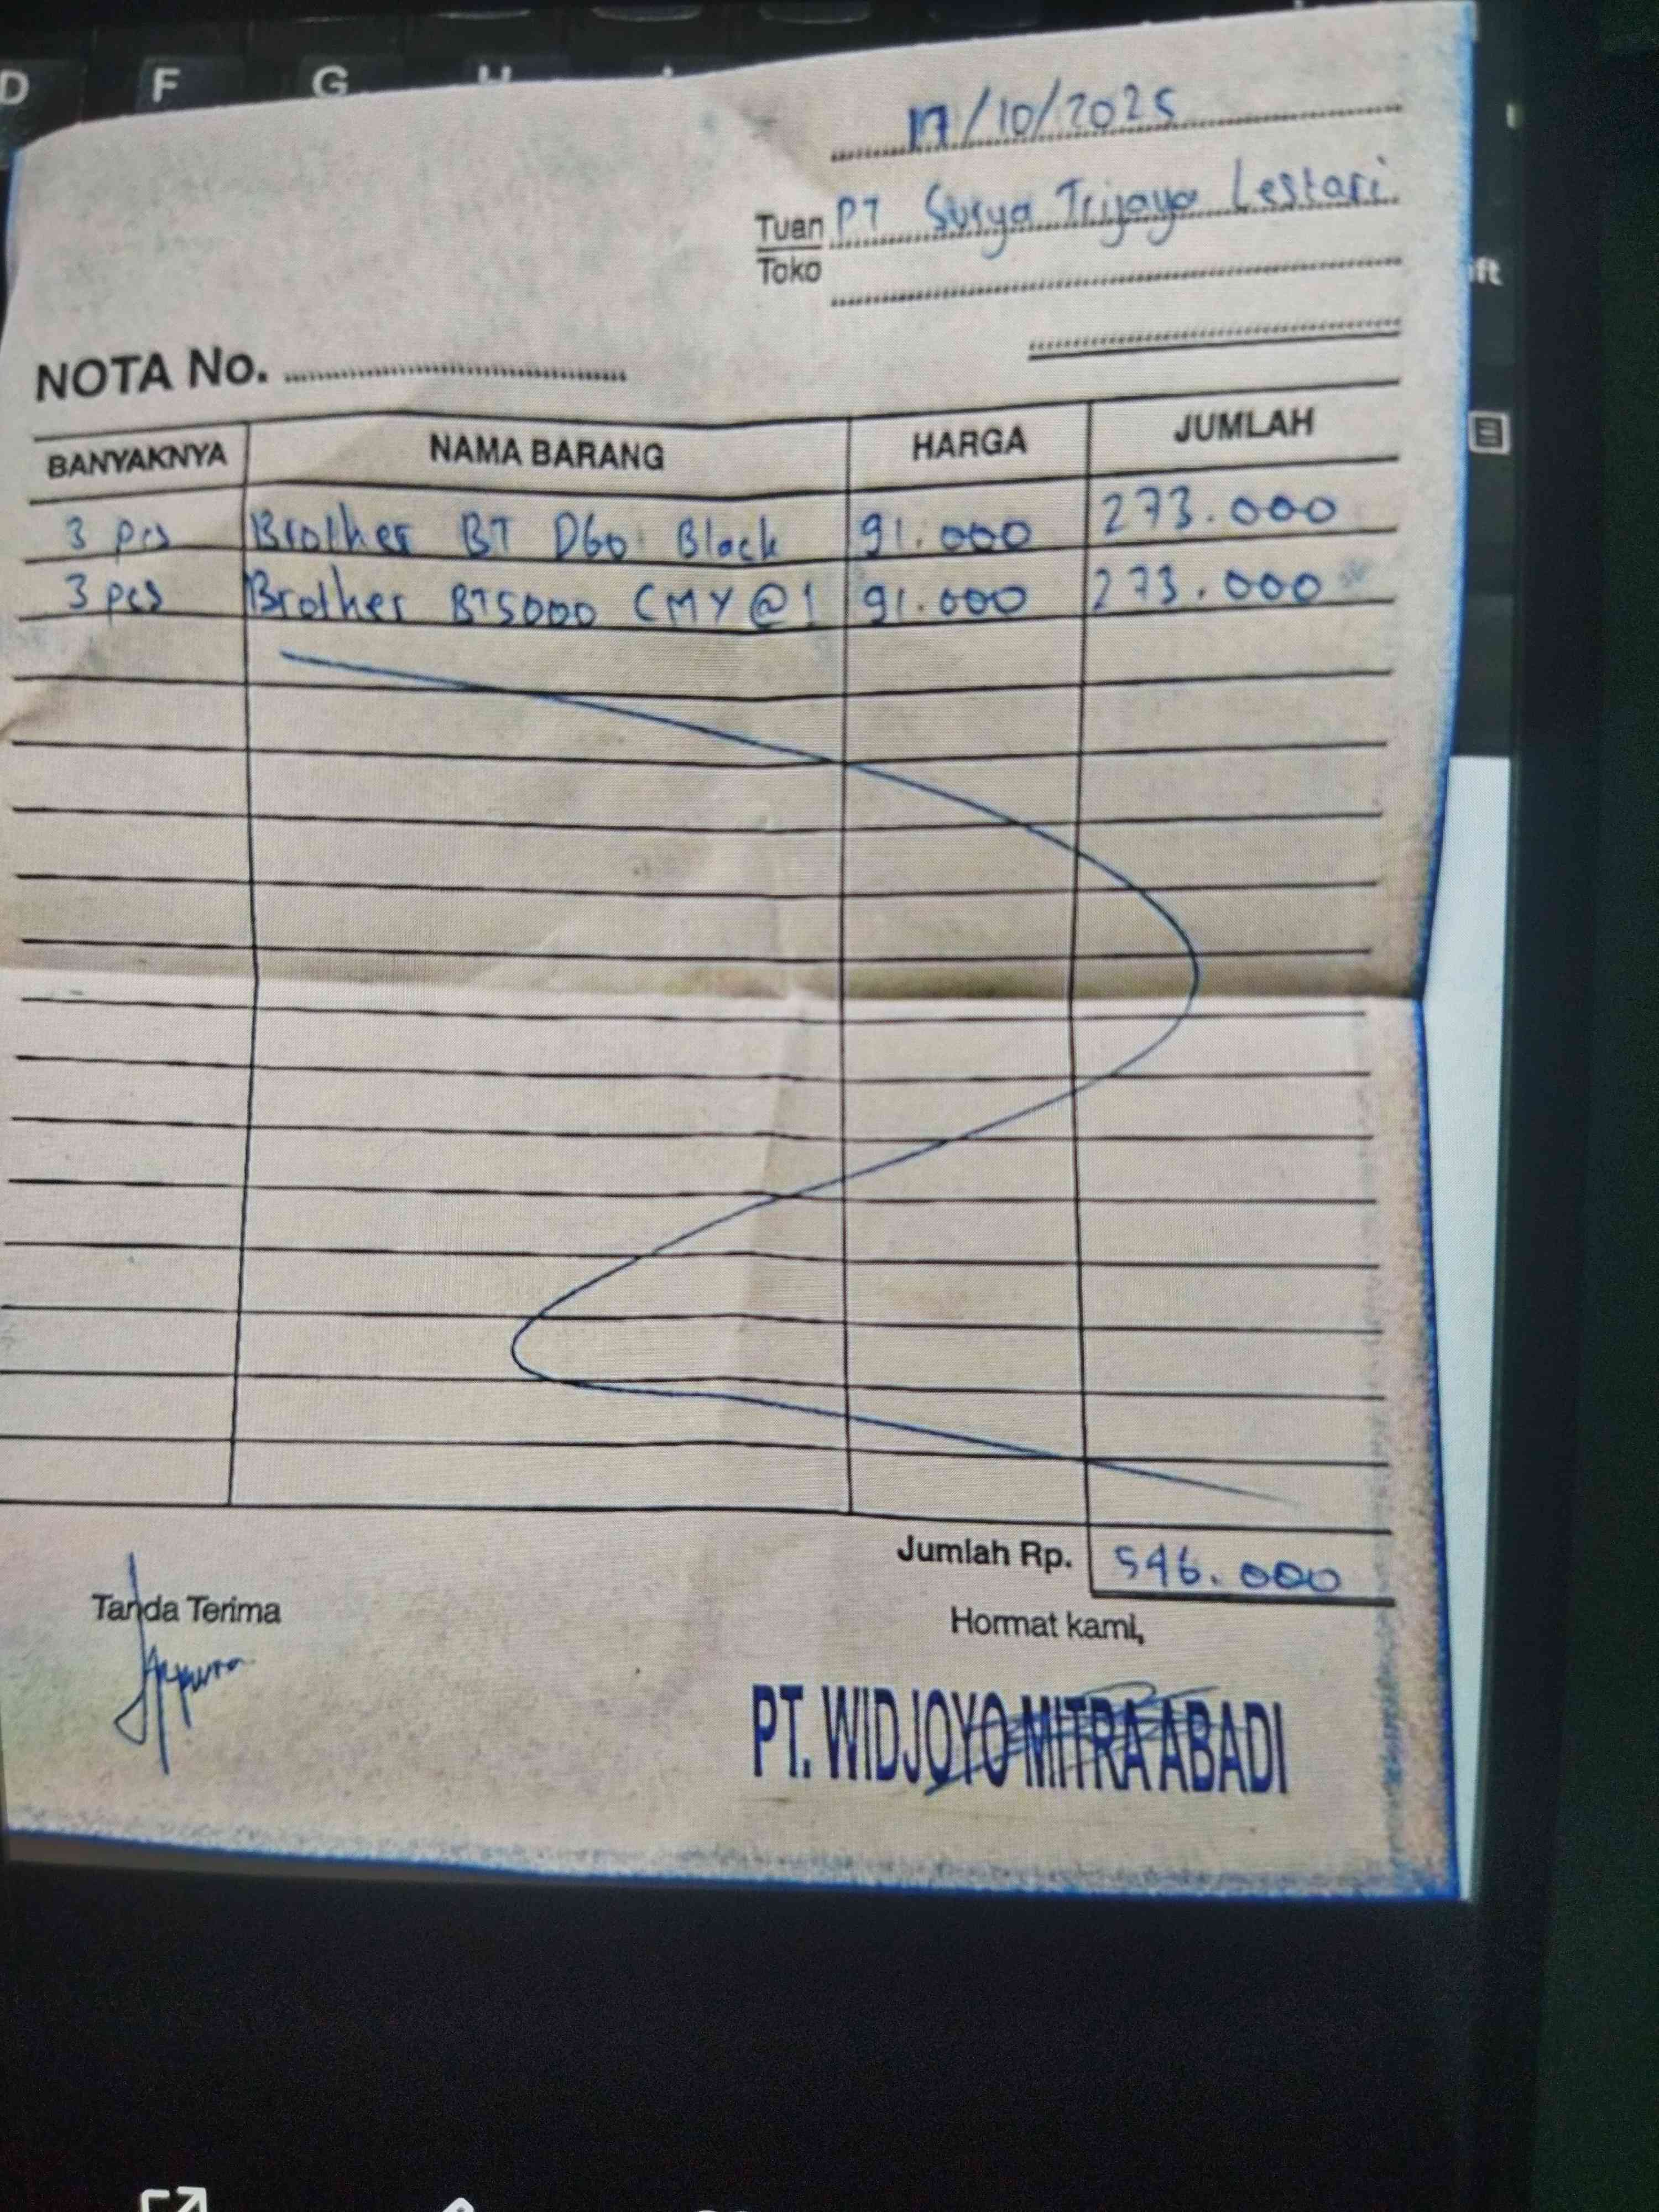 D F G
17/10/2025
Tuan PT Surya Trijaya Lestari
Toko
ft
NOTA No.
BANYAKNYA NAMA BARANG HARGA JUMLAH
3 pcs Brother BT D60 Black 91.000 273.000
3 pcs Brother BT5000 CMY @1 91.000 273.000
Jumlah Rp. 546.000
Tanda Terima
Hormat kami,
PT. WIDJOYO MITRA ABADI